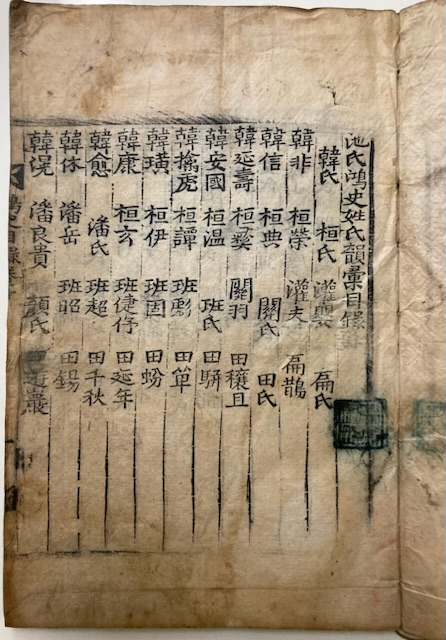 池氏鴻史姓氏韻彙目錄
韓氏 桓氏 灌嬰 扁氏
韓非 桓榮 灌夫 扁鵲
韓信 桓典 關氏 田氏
韓延壽 桓彛 關羽 田穰且
韓安國 桓温 班氏 田駢
韓擒虎 桓譚 班彪 田單
韓璜 桓伊 班固 田蚡
韓康 桓玄 班倢伃 田延年
韓愈 潘氏 班超 田千秋
韓休 潘岳 班昭 田錫
韓滉 潘良貴 顏氏 田遊巖